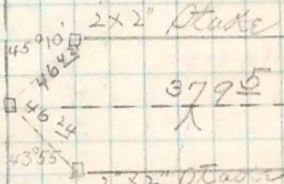 2 x 2" Stake
45°10'
46 42
379 5
46 24
43°55
2 x 2" Stake